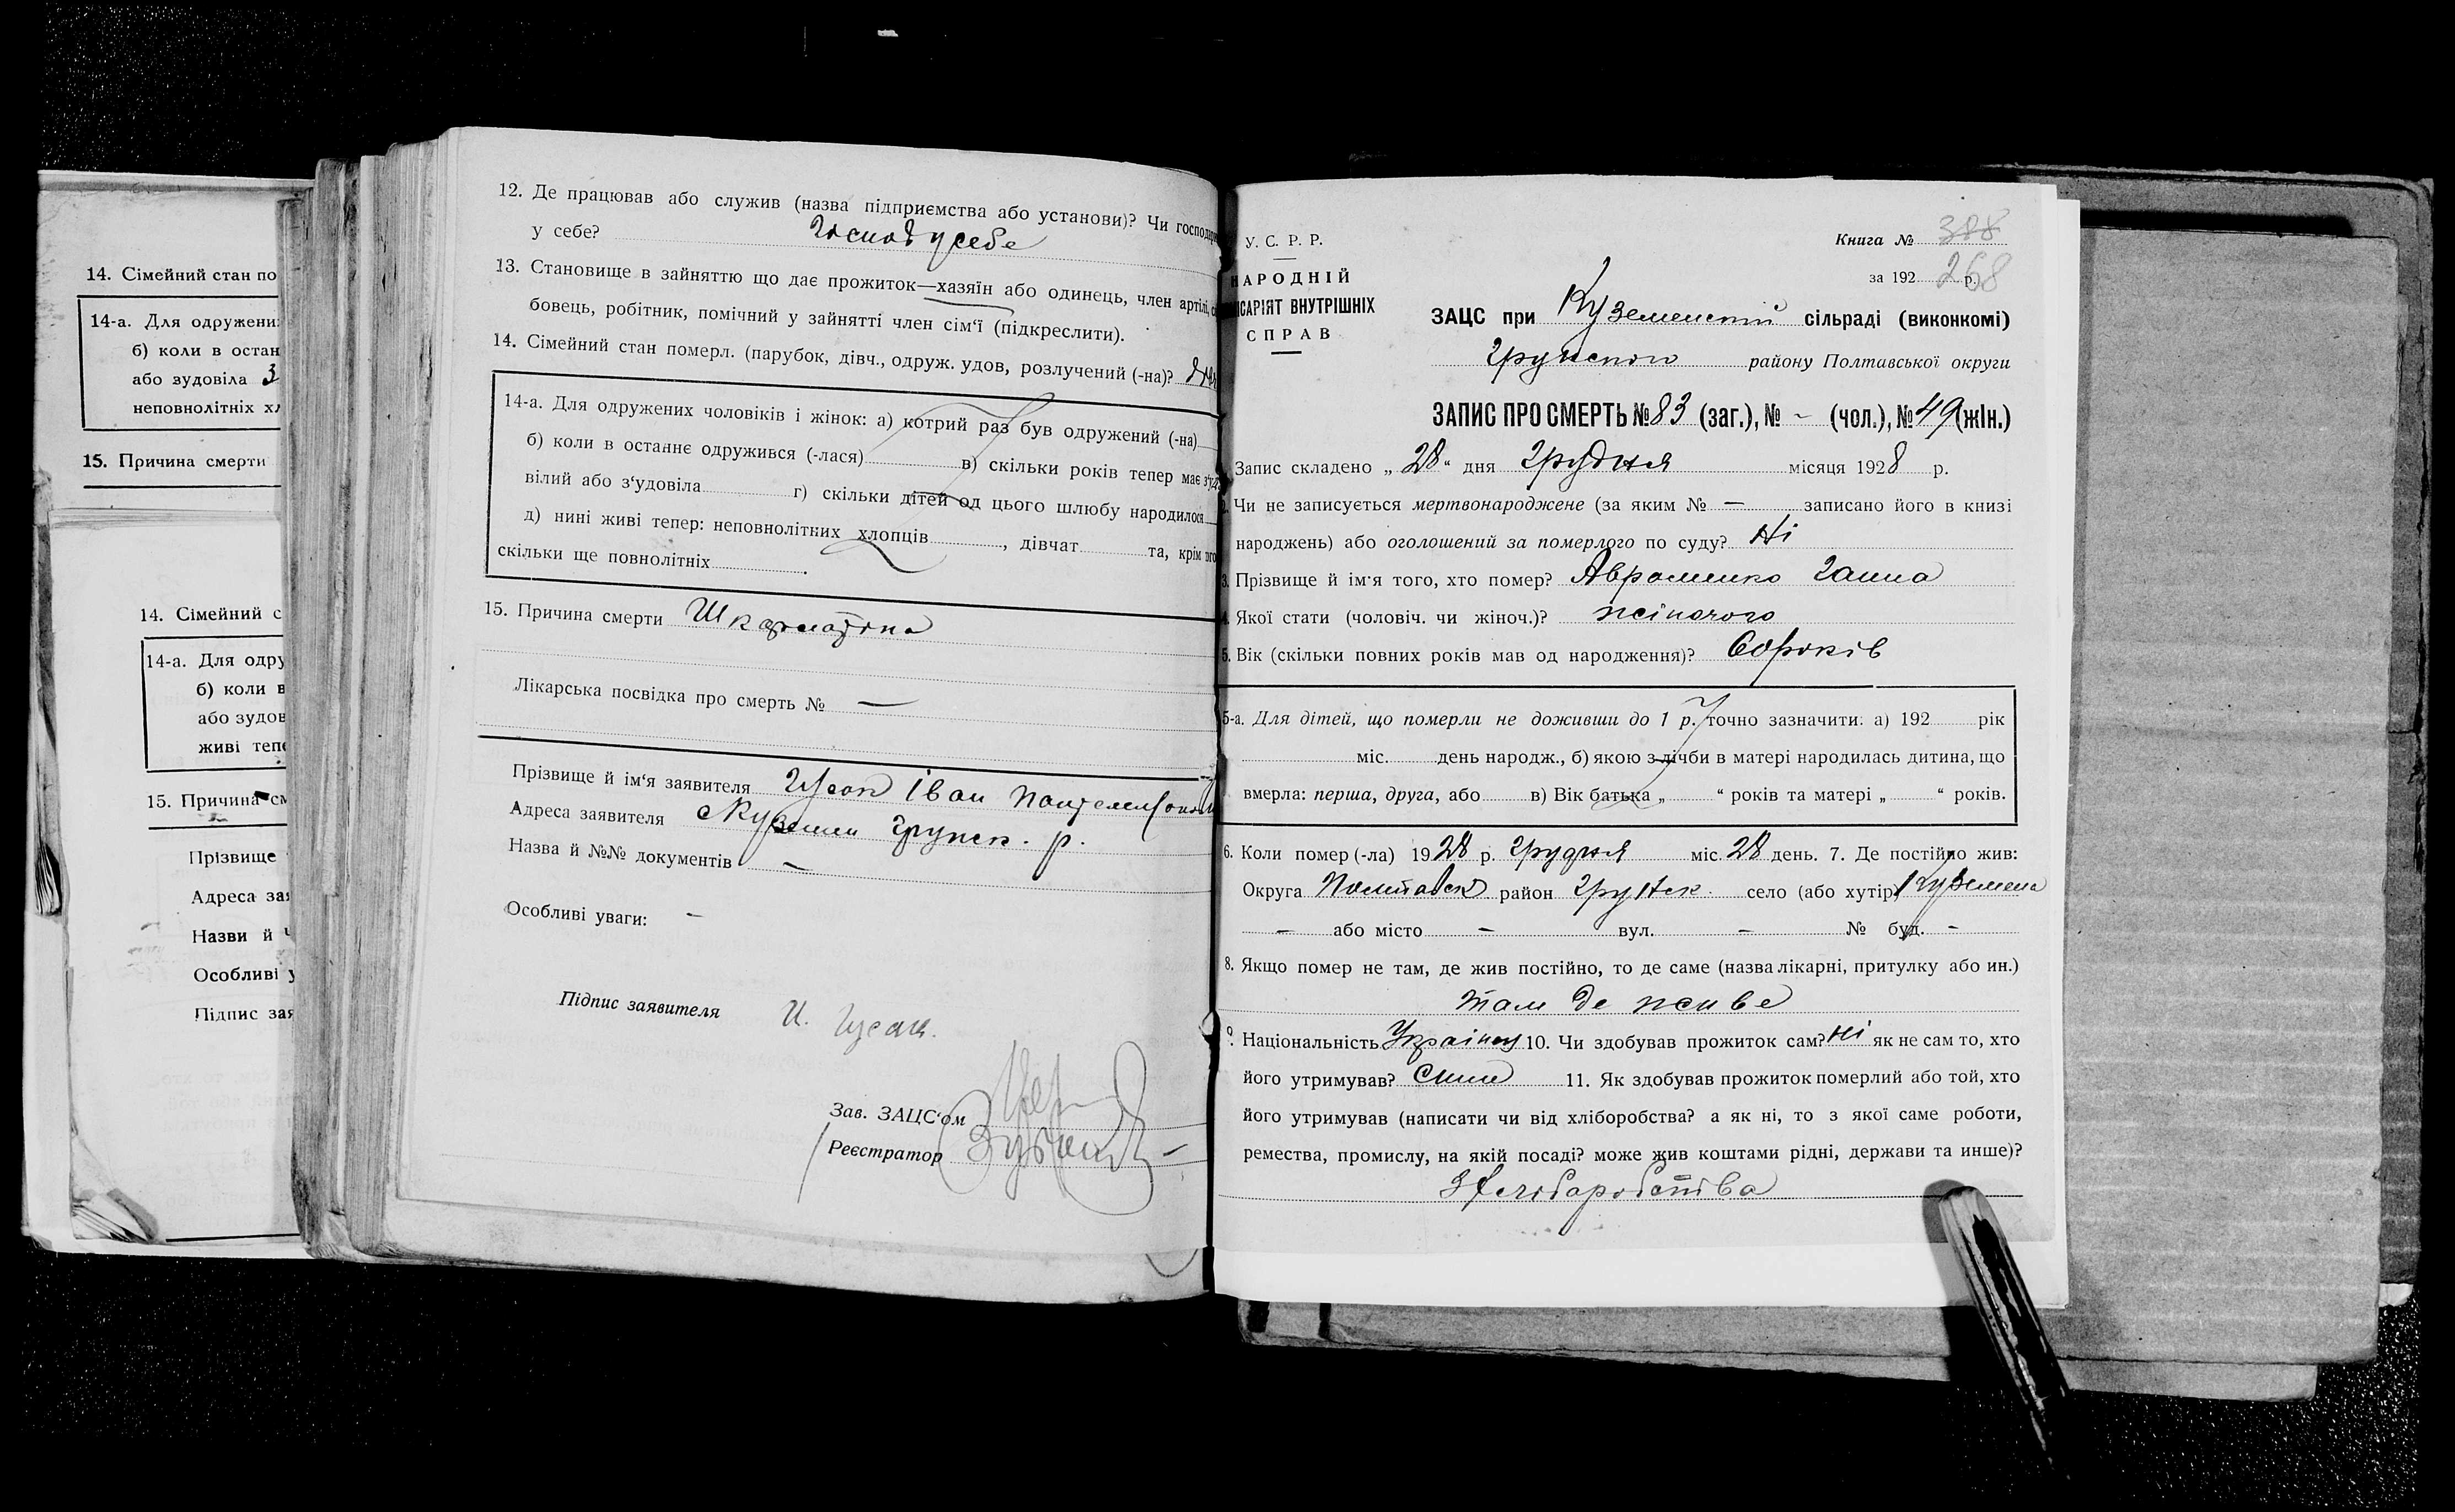 14. Сімейний стан по
14-а. Для одружени
б) коли в остан
або зудовіла 3
неповнолітніх хл
15. Причина смерти
14. Сімейний с
14-а. Для одру
б) коли в
або зудов
живі тепе
15. Причина см
Прізвище
Адреса зая
Назви й
Особливі у
Підпис зая
12. Де працював або служив (назва підприємства або установи)? Чи господарю
у себе? Господ у себе
13. Становище в зайняттю що дає прожиток—хазяїн або одинець, член артілі,
бовець, робітник, помічний у зайнятті член сім'ї (підкреслити).
14. Сімейний стан померл. (парубок, дівч., одруж. удов, розлучений (-на)?
14-а. Для одружених чоловіків і жінок: а) котрий раз був одружений (-на)
б) коли в останнє одружився (-лася) в) скільки років тепер має
вілий або з'удовіла г) скільки дітей од цього шлюбу народилося
д) нині живі тепер: неповнолітних хлопців , дівчат та, крім того
скільки ще повнолітніх .
15. Причина смерти Шкарлатіна
Лікарська посвідка про смерть № —
Прізвище й ім'я заявителя Гусак Іван
Адреса заявителя с Кузємин Грунск. р.
Назва й №№ документів —
Особливі уваги: —
Підпис заявителя И. Гусак.
Зав. ЗАЦС'ом
Реєстратор
У. С. Р. Р.
НАРОДНІЙ
ІСАРІЯТ ВНУТРІШНІХ
СПРАВ
Книга № 388
за 192 р. 268
ЗАЦС при Куземенській сільраді (виконкомі)
Грунского району Полтавської округи
ЗАПИС ПРО СМЕРТЬ № 83 (заг.), № - (чол.), № 49 (жін.)
Запис складено „ 28 “ дня Грудня місяця 1928 р.
Чи не записується мертвонароджене (за яким № — записано його в книзі
народжень) або оголошений за померлого по суду? Ні
3. Прізвище й ім'я того, хто помер? Авраменко Ганна
Якої стати (чоловіч. чи жіноч.)? жіночого
5. Вік (скільки повних років мав од народження)?
5-а. Для дітей, що померли не доживши до 1 р. точно зазначити: а) 192 рік
міс. день народж., б) якою з лічби в матері народилась дитина, що
вмерла: перша, друга, або в) Вік батька „ “ років та матері „ “ років.
6. Коли помер (-ла) 1928 р. Грудня міс. 28 день. 7. Де постійно жив:
Округа Полтавск район Грунск. село (або хутір) Куземена
— або місто — вул. — № буд. —
8. Якщо помер не там, де жив постійно, то де саме (назва лікарні, притулку або ин.)
там де живе
9. Національність Українц 10. Чи здобував прожиток сам? Ні як не сам то, хто
його утримував? Сини 11. Як здобував прожиток померлий або той, хто
його утримував (написати чи від хліборобства? а як ні, то з якої саме роботи,
ремества, промислу, на якій посаді? може жив коштами рідні, держави та инше)?
З хліборобства